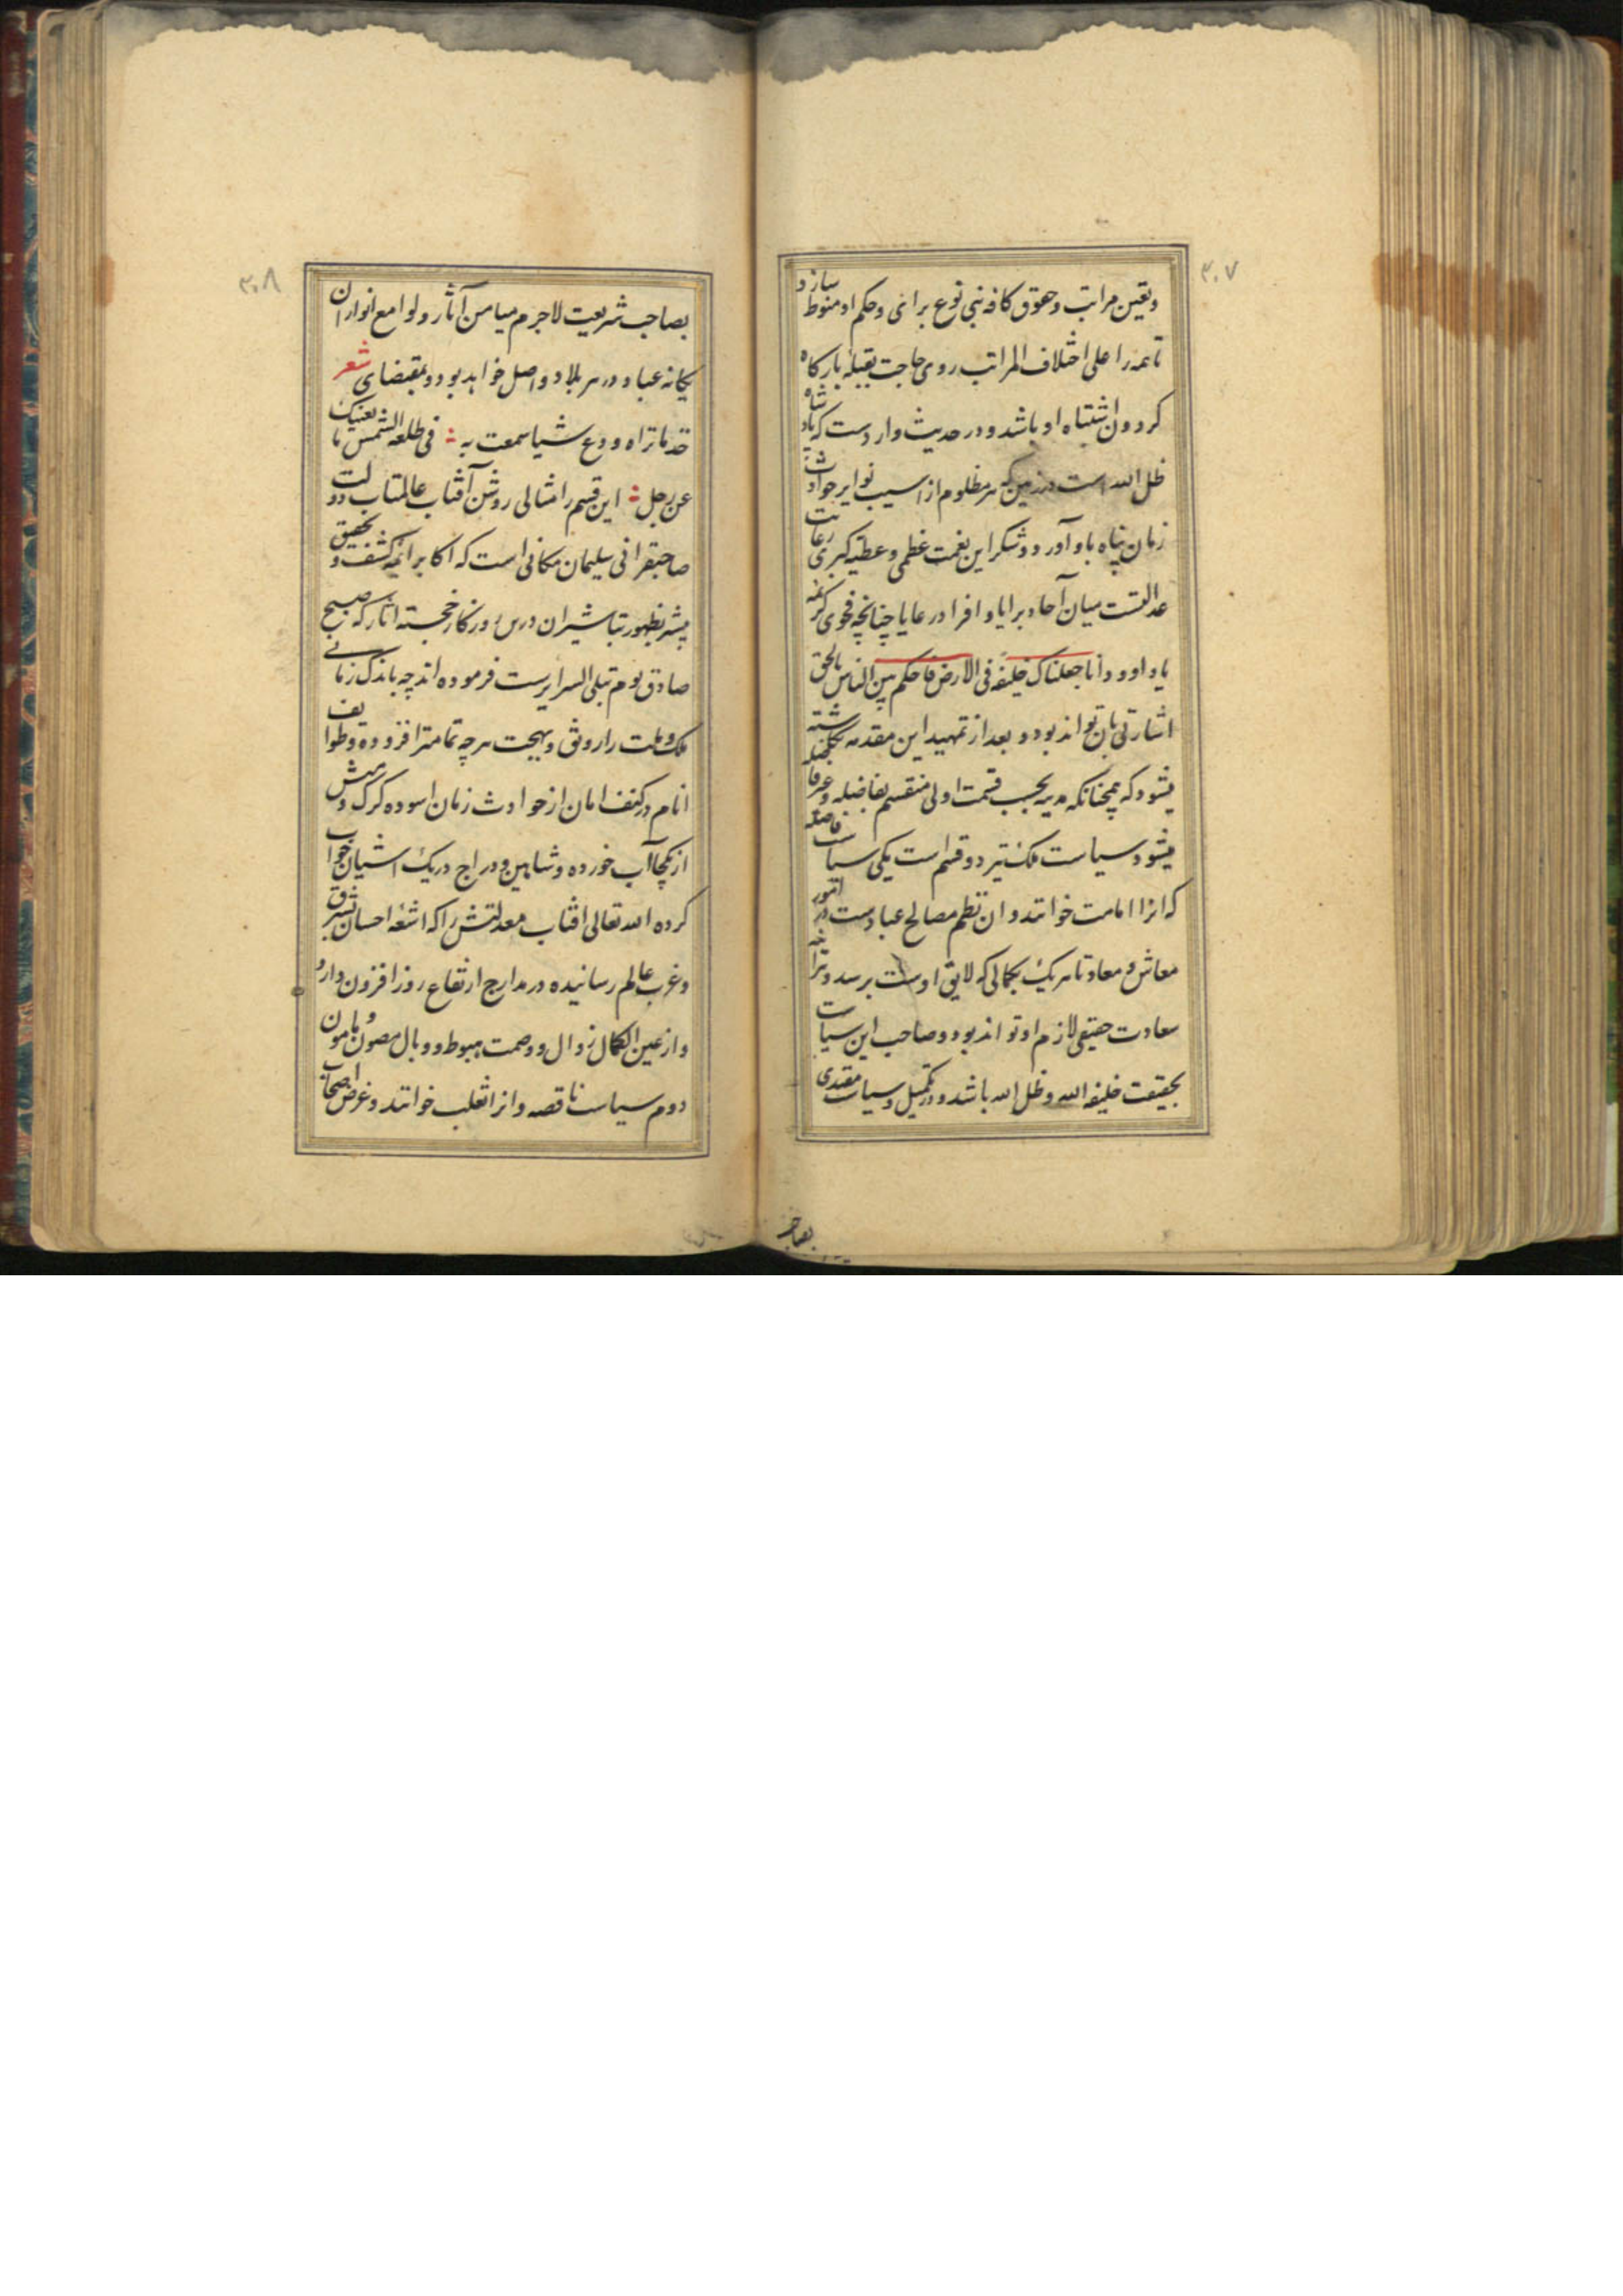 ۳۰۷
و تعین مراتب و حقوق کافه بنی نوع برای و حکم او منوط سازد
تا همه را علی اختلاف المراتب روی حاجت بقبله بارگاه
گردون اشتباه او باشد و در حدیث واردست که پادشاه
ظل الله است در زمین که هر مظلوم از آسیب نوایر حوادث
زمان پناه باو آورد و شکر این نعمت عظمی و عطیه کبری رعایت
عدالتست میان آحاد برایا و افراد رعایا چنانچه فحوی کریمه
یا داوود انا جعلناک خلیفه فی الارض فاحکم بین الناس بالحق
اشارتی بان تواند بود و بعد از تمهید این مقدمه
میشود که همچنانکه مدینه بحسب قسمت اولی منقسم بفاضله و غیر فاضله
میشود سیاست ملک نیز دو قسم است یکی سیاست فاضله
که انرا امامت خوانند و ان نظم مصالح عبادست در امور
معاش و معاد تا هریک بکمالی که لایق اوست برسد و هراینه
سعادت حقیقی لازم او تواند بود و صاحب این سیاست
بحقیقت خلیفه الله و ظل الله باشد و در تکمیل و سیاست مقتدی
بصاحب
۳۰۸
بصاحب شریعت لاجرم میامن آثار و لوامع انوار ان
یگانه عباد و در هر بلاد واصل خواهد بود و بمقتضای شعر
خذ ما تراه و دع شیا سمعت به فی طلعة الشمس ما یغنیک
عن زحل این قسم را مثالی روشن آفتاب عالمتاب دولت
صاحبقرانی سلیمان مکانی است که اکابر ائمه کشف و تحقیق
مبشر بظهور تباشیر ان درین روزگار خجسته اثار که صبح
صادق یوم تبلی السرایرست فرموده اند چه باندک زمانی
ملک و ملت را رونق و بهجت هر چه تمامتر افزوده و طوایف
انام در کنف امان از حوادث زمان اسوده گرگ و میش
از یکجا آب خورده و شاهین و دراج در یک اشیان خواب
کرده الله تعالی افتاب معدلتش را که اشعه احسان بشرق
و غرب عالم رسانیده در مدارج ارتفاع روز افزون دارد
و از عین الکمال زوال و وصمت هبوط و وبال مصون و مامون
دوم سیاست ناقصه و انرا تغلب خوانند و غرض اصحاب